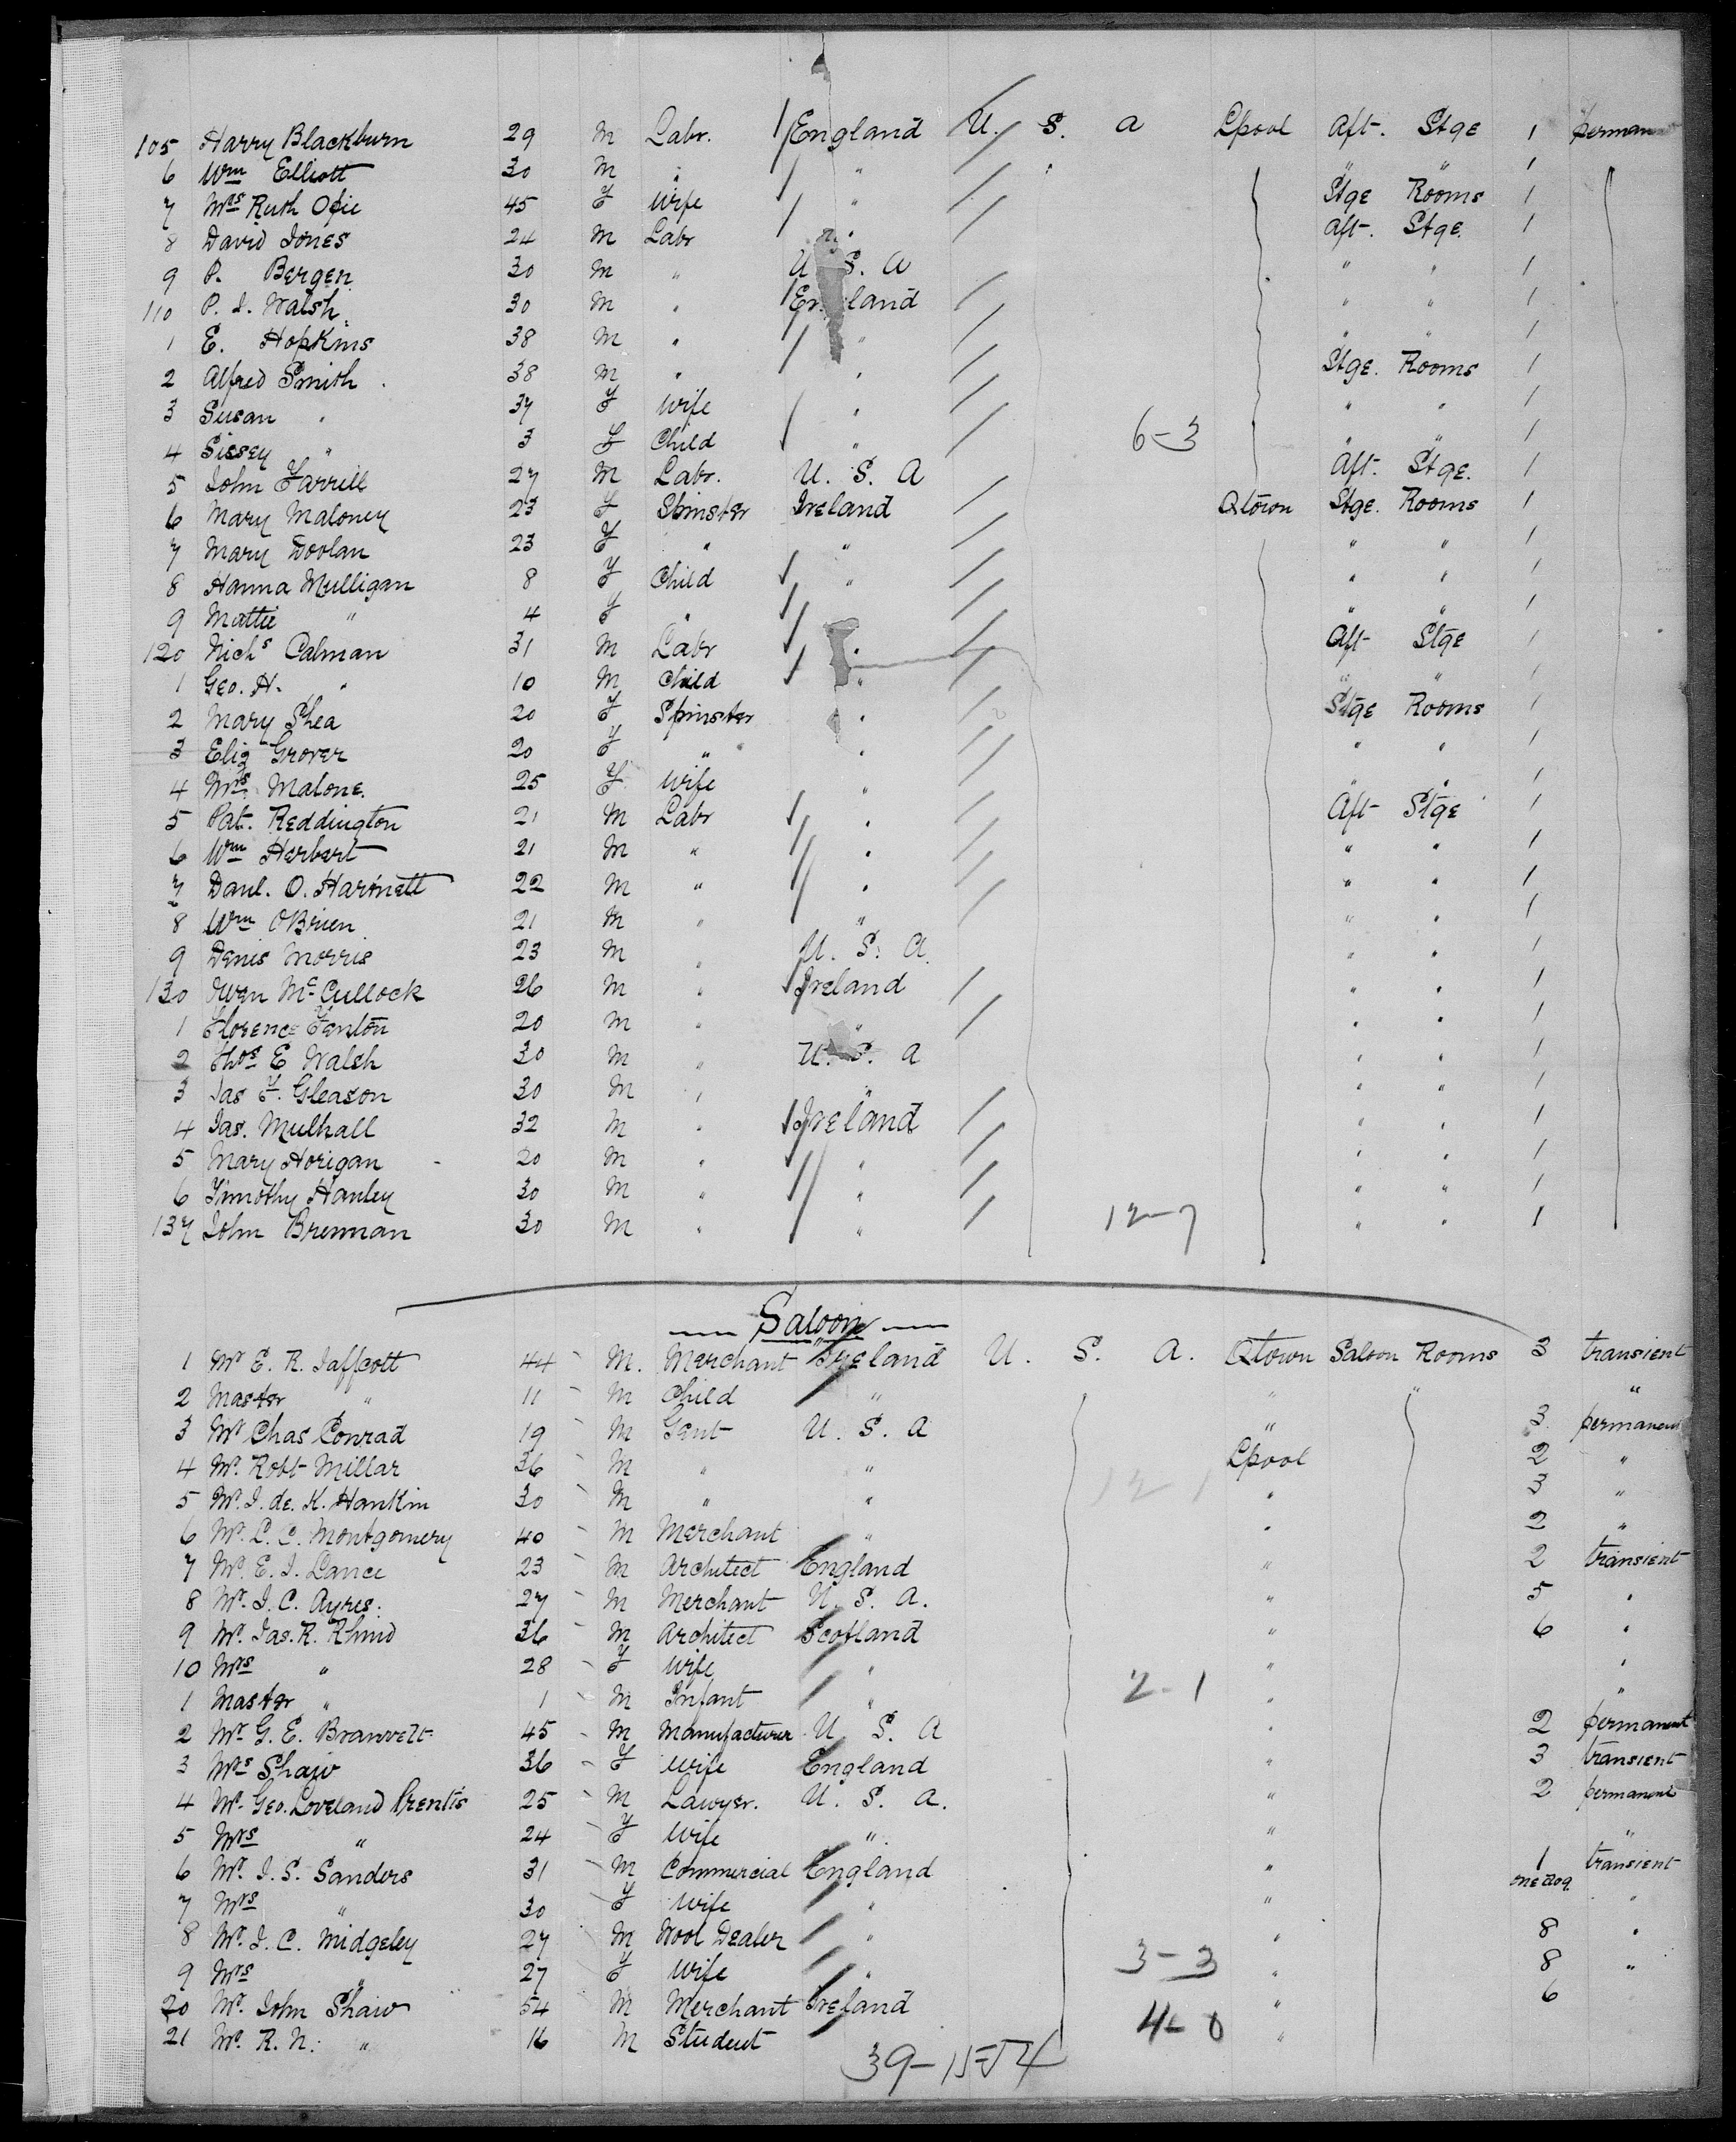 105 Harry Blackburn 29 M Labr. England U. S. A Lpool Aft. Stge 1 perman
6 Wm Elliott 30 M " " " " " 1
7 Mrs Ruth Opie 45 F Wife " Stge Rooms 1
8 David Jones 24 M Labr " Aft. Stge. 1
9 P. Bergen 30 M " U S. A " " 1
110 P. J. Walsh 30 M " England " " 1
1 E. Hopkins 38 M " " " " 1
2 Alfred Smith 38 M " " Stge. Rooms 1
3 Susan " 37 F Wife " " " 1
4 Sissey " 3 F Child " 6-3 " " 1
5 John Farrill 27 M Labr. U. S. A Aft. Stge. 1
6 Mary Maloney 23 F Spinster Ireland Qtown Stge. Rooms 1
7 Mary Doolan 23 F " " " " 1
8 Hanna Mulligan 8 F Child " " " 1
9 Mattie " 4 F " " " 1
120 Nichs Calman 31 M Labr " Aft Stge 1
1 Geo. H. " 10 M Child " " " 1
2 Mary Shea 20 F Spinster " Stge Rooms 1
3 Eliz Grover 20 F " " " " 1
4 Mrs Malone. 25 F Wife " " " 1
5 Pat. Reddington 21 M Labr " Aft Stge 1
6 Wm Herbert 21 M " " " " 1
7 Danl. O. Hartnett 22 M " " " " 1
8 Wm OBrien 21 M " " " " 1
9 Denis Morris 23 M " U. S. A. " " 1
130 Owen McCullock 26 M " Ireland " " 1
1 Florence Fenton 20 M " " " " 1
2 Thos E Walsh 30 M " U. S. A " " 1
3 Jas F. Gleason 30 M " " " " 1
4 Jas. Mulhall 32 M " Ireland " " 1
5 Mary Horigan 20 M " " " " 1
6 Timothy Hanley 30 M " " " " 1
137 John Brennan 30 M " " 12-7 " " 1
Saloon
1 Mr E. R. Jaffcott 44 M. Merchant Ireland U. S. A. Qtown Saloon Rooms 3 transient
2 Master " 11 M Child " " " "
3 Mr Chas Conrad 19 M Gent U. S. A " 3 permanent
4 Mr. Robt Millar 36 M " " Lpool 2 "
5 Mr. J. de. K. Hankin 30 M " " 12-1 " 3 "
6 Mr. L. C. Montgomery 40 M Merchant " " 2 "
7 Mr. E. J. Lance 23 M Architect England " 2 transient
8 Mr. J. C. Ayres. 27 M Merchant U. S. A. " 5 "
9 Mr. Jas. R. Rhind 36 M Architect Scotland " 6 "
10 Mrs " 28 F Wife " " "
1 Master " 1 M Infant " 2-1 " "
2 Mr G. E. Brauvelt 45 M Manufacturer U. S. A " 2 permanent
3 Mrs Shaw 36 F Wife England " 3 transient
4 Mr. Geo. Loveland Prentis 25 M Lawyer. U. S. A. " 2 permanent
5 Mrs " 24 F Wife " " "
6 Mr. J. S. Sanders 31 M Commercial England " 1 transient
one dog.
7 Mrs " 30 F Wife " " "
8 Mr. J. C. Midgeley 27 M Wool Dealer " " 8 "
9 Mrs " 27 F Wife " 3-3 " 8 "
20 Mr. John Shaw 54 M Merchant Ireland " 6
21 Mr. R. N. " 16 M Student 4-0 "
39-15=54